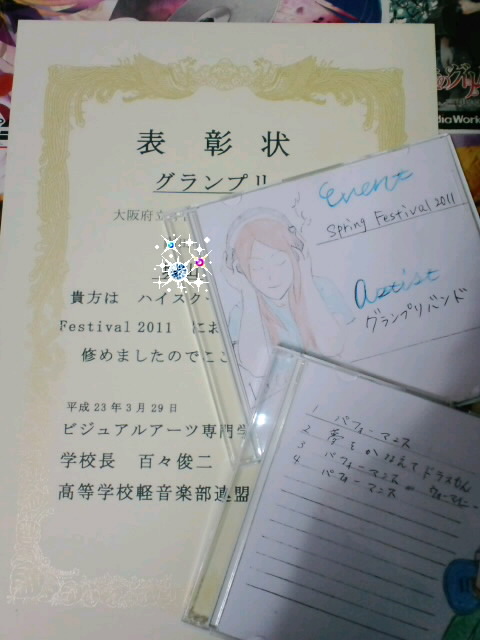 表彰状
グランプリ
大阪府立
貴方は ハイスク
Festival 2011 にお
修めましたのでここ
平成23年3月29日
ビジュアルアーツ専門学
学校長 百々俊二
高等学校軽音楽部連盟
Event
Spring Festival 2011
Artist
グランプリバンド
1 パフォーマンス
2 夢をかなえてドラえもん
3 パフォーマンス
4 パフォーマンス